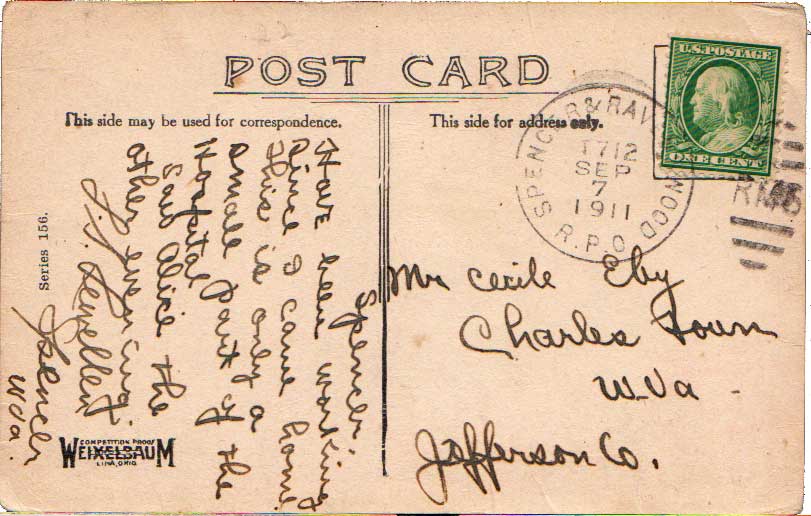 POST CARD
This side may be used for correspondence.
This side for address only.
U.S. POSTAGE
ONE CENT
SPENCER & RAV WOOD
T712
SEP
7
1911
R.P.O
RMS
Spencer
Have been working
Since I came home
this is only a
small Part of the
Hospital
Saw Alice the
other evening.
Spencer
W.Va.
Mr Cecile Eby
Charles Town
W.Va
Jefferson Co.
Series 156.
COMPETITION PROOF
WEIXELBAUM
LIMA, OHIO